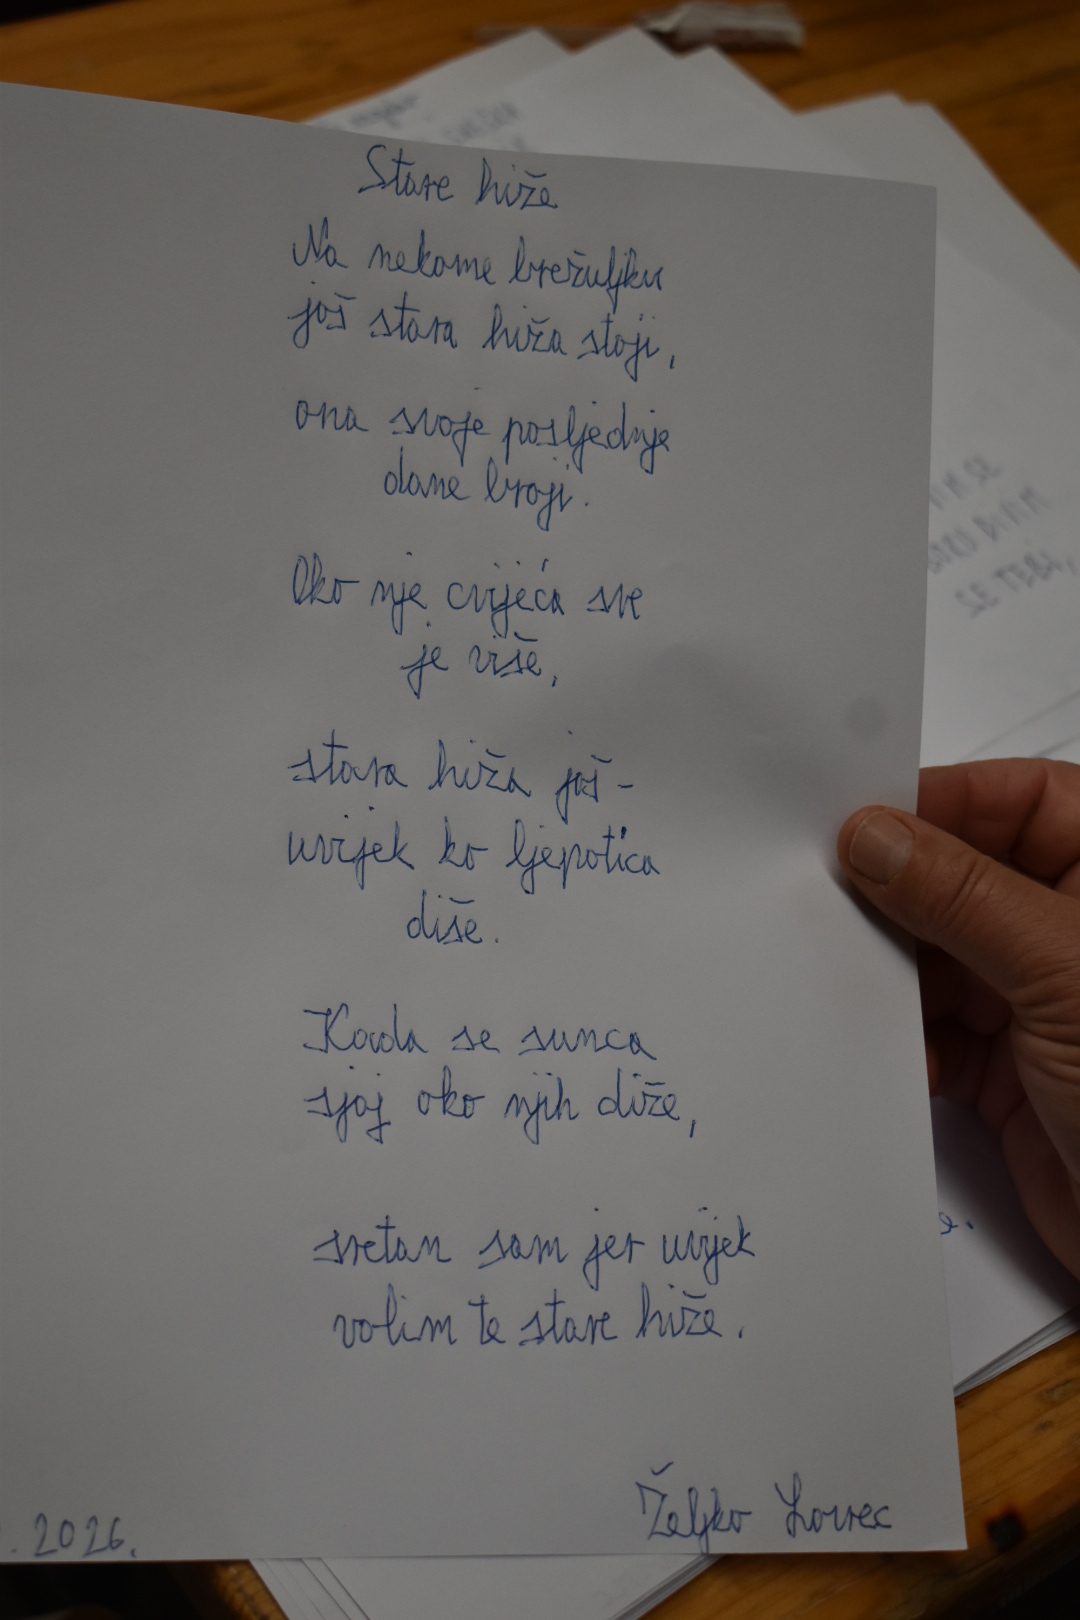 Stare hiže
Na nekome brežuljku
još stara hiža stoji,
ona svoje posljednje
dane broji.
Oko nje cvijeća sve
je više,
stara hiža još-
uvijek ko ljepotica
diše.
Kada se sunca
sjaj oko njih diže,
sretan sam jer uvijek
volim te stare hiže.
Željko Lovrec
. 2026.
SE TEBI,